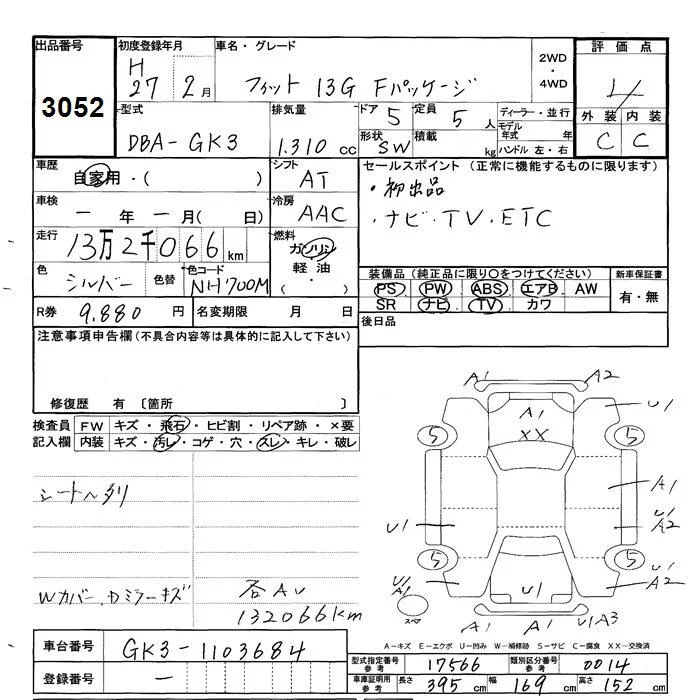 出品番号 初度登録年月 車名・グレード 2WD・4WD 評価点
3052 H 27 2月 フィット 13G Fパッケージ 4
型式 排気量 ドア 5 定員 5人 ディーラー・並行 外装 内装
DBA-GK3 1.310 cc 形状 SW 積載 kg モデル年式 年 ハンドル 左・右 C C
車歴 自家用・( ) シフト AT セールスポイント (正常に機能するものに限ります)
車検 一年一月( 日) 冷房 AAC ・初出品
・ナビ・TV・ETC
走行 13万2千066km 燃料 ガソリン 軽油・( )
色 シルバー 色替 色コード NH700M 装備品 (純正品に限り○をつけてください) 新車保証書
PS PW ABS エアB AW 有・無
SR ナビ TV カワ
R券 9.880円 名変期限 月 日 後日品
注意事項申告欄(不具合内容等は具体的に記入して下さい)
修復歴 有 〔箇所 〕
検査員 FW キズ・飛石・ヒビ割・リペア跡・×要
記入欄 内装 キズ・汚レ・コゲ・穴・スレ・キレ・破レ
Wカバー、Dミラーキズ
132066km
A1 A2
A1 U1
XX
5 5
A1
U1 U1 A2
5 5
U1 A1 U1 A2
スペア
A1 A1 U1A3
A-キズ E-エクボ U-凹み W-補修跡 S-サビ C-腐食 XX-交換済
車台番号 GK3-1103684
登録番号 ー
型式指定番号 参考 17566 類別区分番号 参考 0014
車庫証明用 参考 長さ 395cm 幅 169cm 高さ 152cm